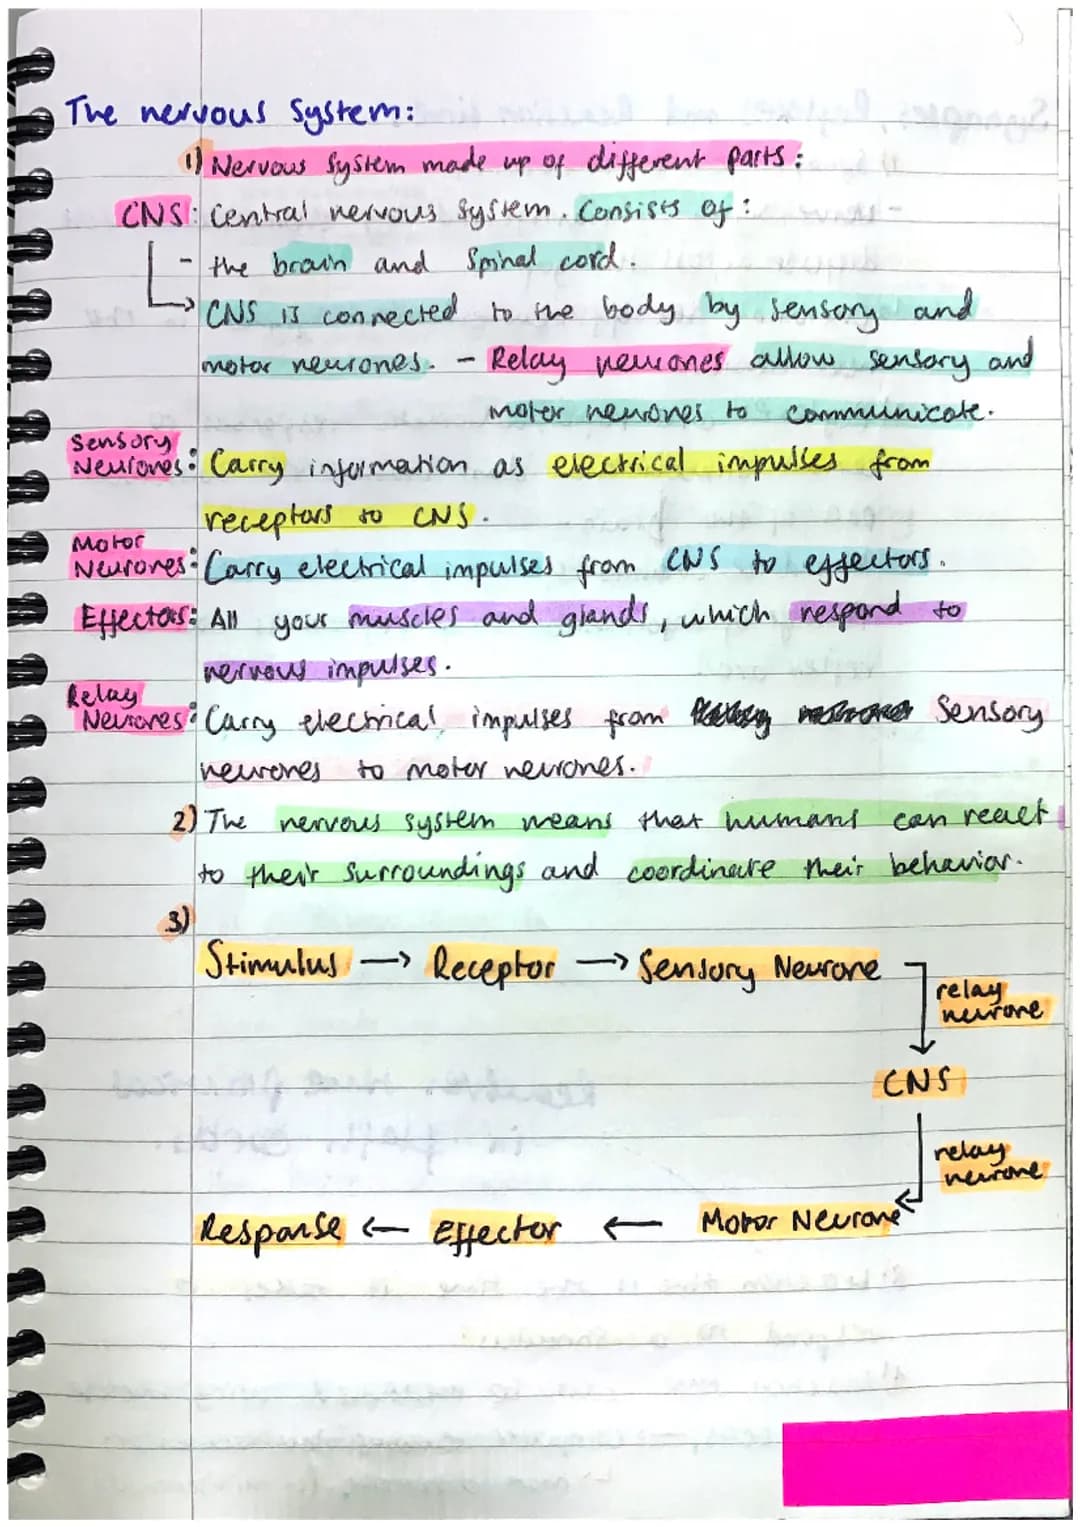 The nervous System:
1) Nervous System made up of different parts:
CNS: Central nervous system. Consists of:
- the brain and spinal cord.
→ CNS is connected to the body by sensory and
motor neurones. - Relay neurones allow sensory and
motor neurones to communicate.
Sensory
Neurones: Carry information as electrical impulses from
receptors to CNS.
Motor
Neurones: Carry electrical impulses from CNS to effectors.
Effectors: All your muscles and glands, which respond to
nervous impulses.
Relay
Neurones: Carry electrical impulses from Sensory
neurones to motor neurones.
2) The nervous system means that humans can react
to their surroundings and coordinate their behavior.
3)
Stimulus → Receptor → Sensory Neurone
relay
neurone
CNS
relay
neurone
Response ← Effector ← Motor Neurone